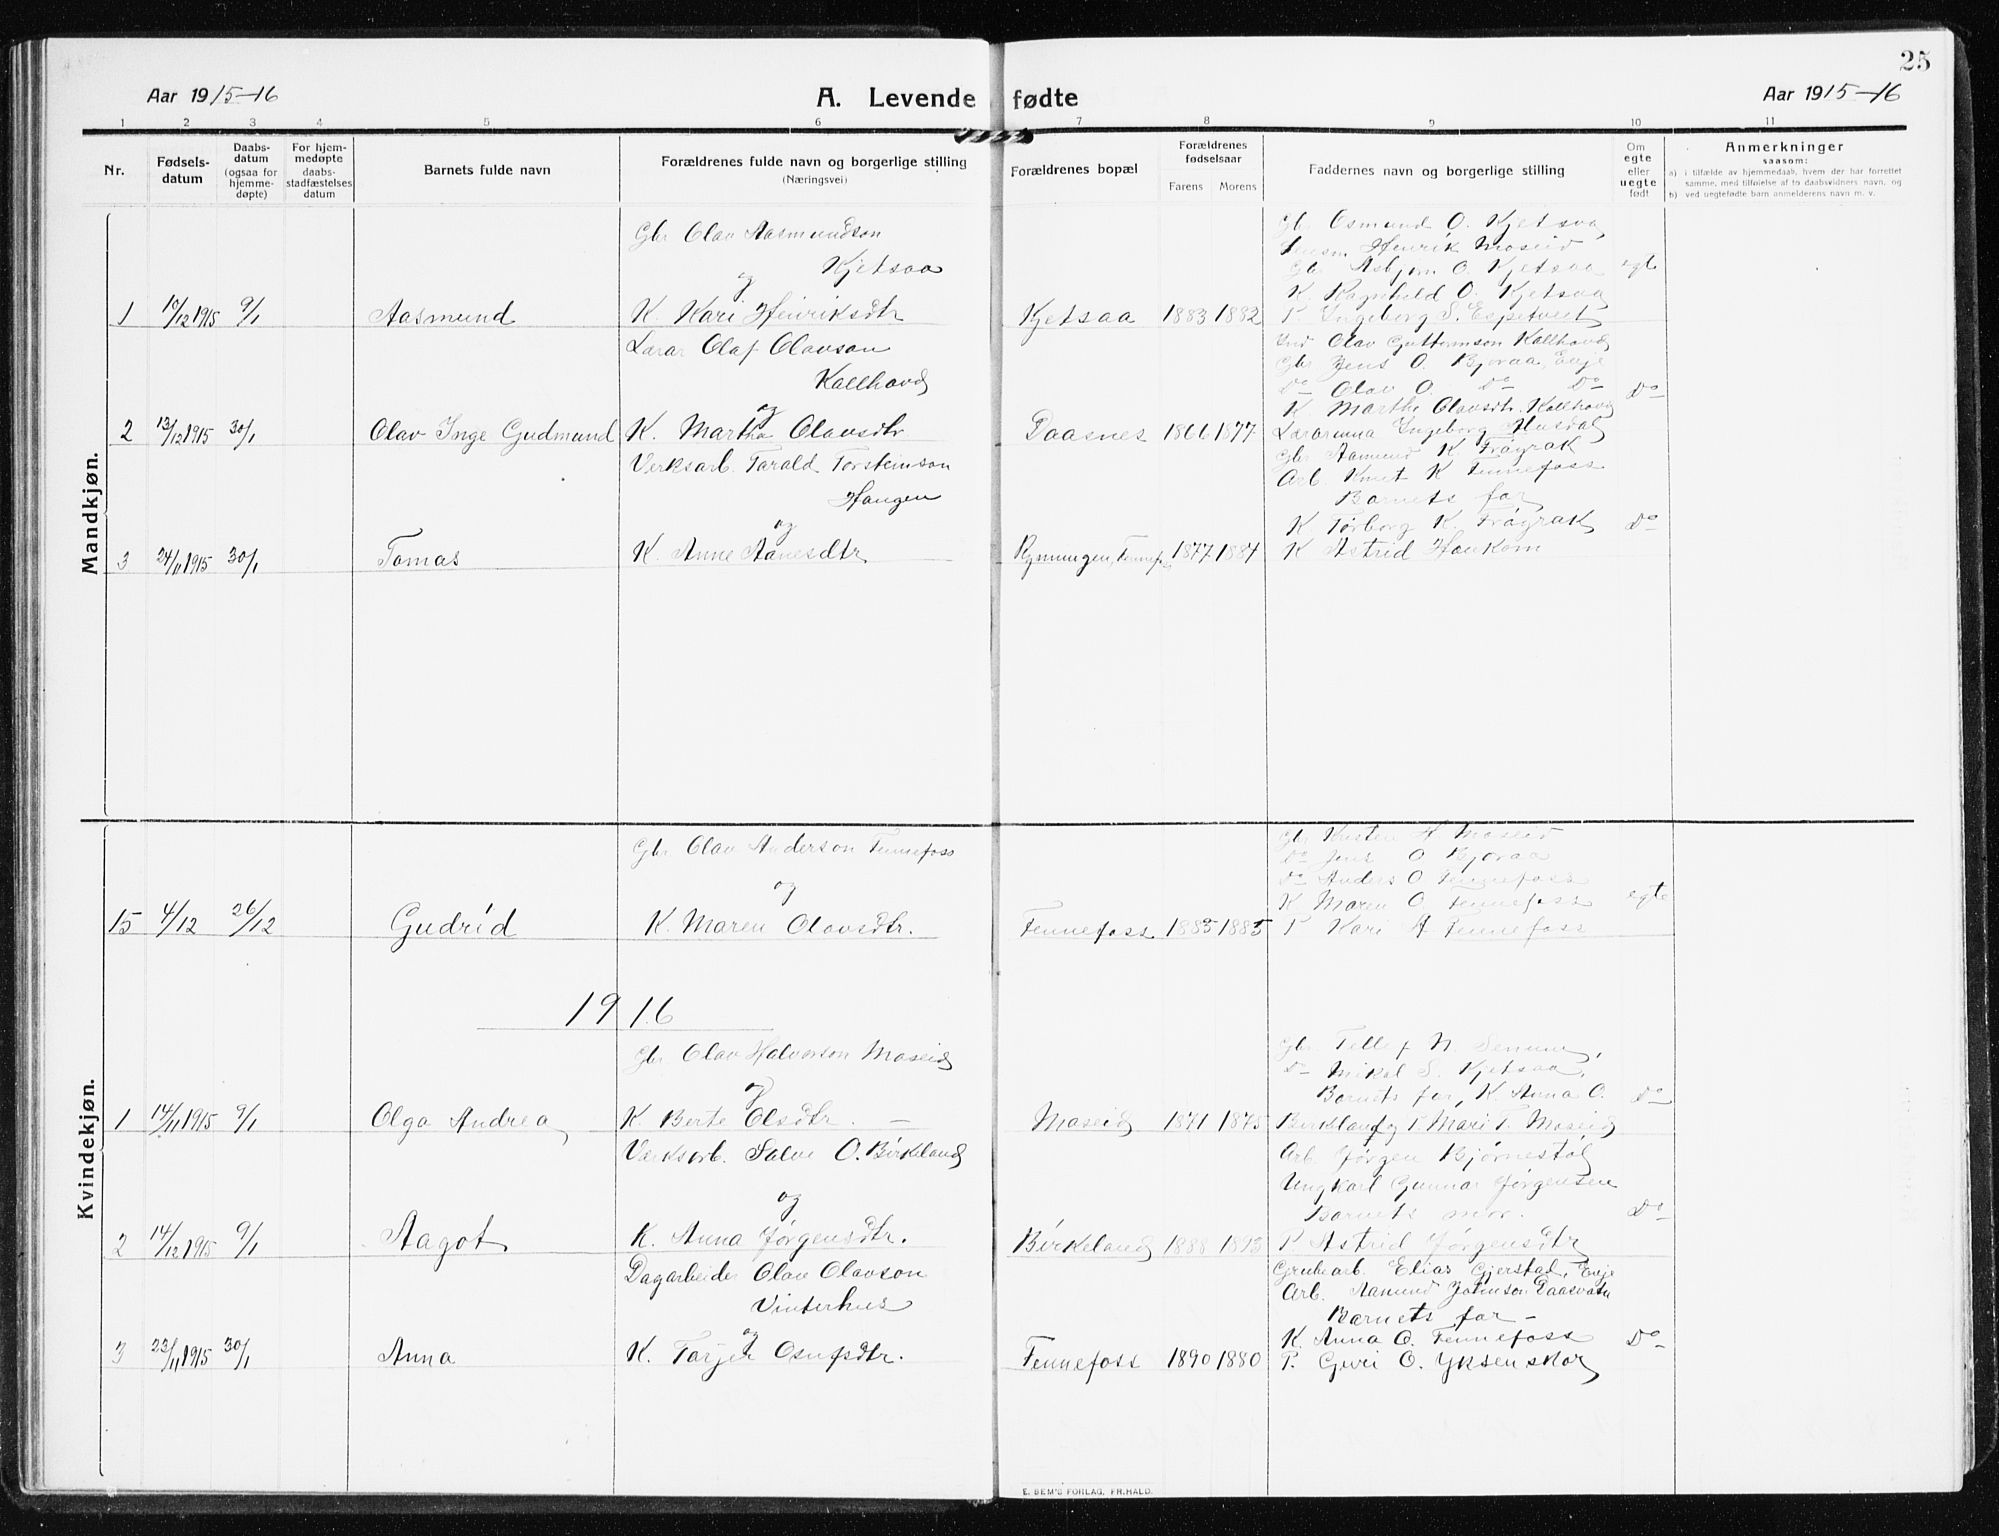 25
Aar 1915-16
A. Levende fødte
Aar 1915-16
1 2 3 4 5 6 7 8 9 10 11
Nr.
Fødsels-
datum
Daabs-
datum
(ogsaa for
hjemme-
døpte)
For hjem-
medøpte
daabs-
stadfæstelses
datum
Barnets fulde navn
Forældrenes fulde navn og borgerlige stilling
(Næringsvei)
Forældrenes bopæl
Forældrenes
fødselsaar
Farens Morens
Faddernes navn og borgerlige stilling
Om
egte
eller
uegte
født
Anmerkninger
saasom:
a) i tilfælde av hjemmedaab, hvem der har forrettet
samme, med tilføielse af to daabsvidners navn, og
b) ved uegtefødte barn anmelderens navn m. v.
Mandkjøn.
Gbr Olav Aasmundson
Kjetsaa
og
1 10/12 1915 9/1 Aasmund K. Kari Heinriksdtr Kjetsaa 1883 1882
Gbr Osmund O. Kjetsaa
Lensm. Henrik Moseid
Gbr Asbjørn O. Kjetsaa egte
K. Ragnhild O. Kjetsaa
P Ingeborg S. Espetveit
Lærar Olaf Olavson
Kallhovd
og
2 13/12 1915 30/1 Olav Inge Gudmund K. Martha Olavsdtr Daasnes 1866 1877
Olav Guttormson Kallhovd
Gbr Jens O. Bjoraa, Evje
Do Olav O. Do Do Do
K Marthe Olavsdtr. Kallhovd
Lærarinna Ingeborg
Verksarb. Tarald Torsteinson
Haugen
og
3 24/11 1915 30/1 Tomas K. Anne Aanesdtr 1877 1884
Gbr Aamund K Frøyrak
Arb. Knut K Fennefoss
Barnets far
K Torborg K. Frøyrak Do
K Astrid Haukom
Kvindekjøn.
Gbr. Olav Anderson Fennefoss
og
15 4/12 26/12 Gudrid K. Maren Olavsdtr. Fennefoss 1885 1885
Gbr Kristen H Moseid
Do Jens O Bjoraa
Do Anders O Fennefoss
K Maren O. Fennefoss egte
P Kari A Fennefoss
1916
Gbr Olav Halvorson Moseid
og
1 14/11 1915 9/1 Olga Andrea K Berte Olsdtr. — Moseid 1871 1875
Gbr. Tellef N. Senum,
Do Mikal S. Kjetsaa,
Barnets far, K Anna O. Do
Birkeland og P. Mari T. Moseid
Verksarb. Salve O. Birkeland
og
2 14/12 1915 9/1 Aagot K. Anna Jørgensdtr. Birkeland 1888 1893
Arb. Jørgen Bjørnestøl
Ungkarl Gunnar Jørgensen
Barnets mor. Do
P. Astrid Jørgensdtr
Dagarbeider Olav Olavson
Vinterhus
og
3 23/11 1915 30/1 Anna K. Tarjer Osufsdtr. Fennefoss 1890 1880
Grubearb. Elias Gjerstad, Evje
Arb. Aamund Johnson Daasvatn
Barnets far —
K. Anna O. Fennefoss Do
P. Guri O. Uksenskor
E. SEM'S FORLAG, FR.HALD.